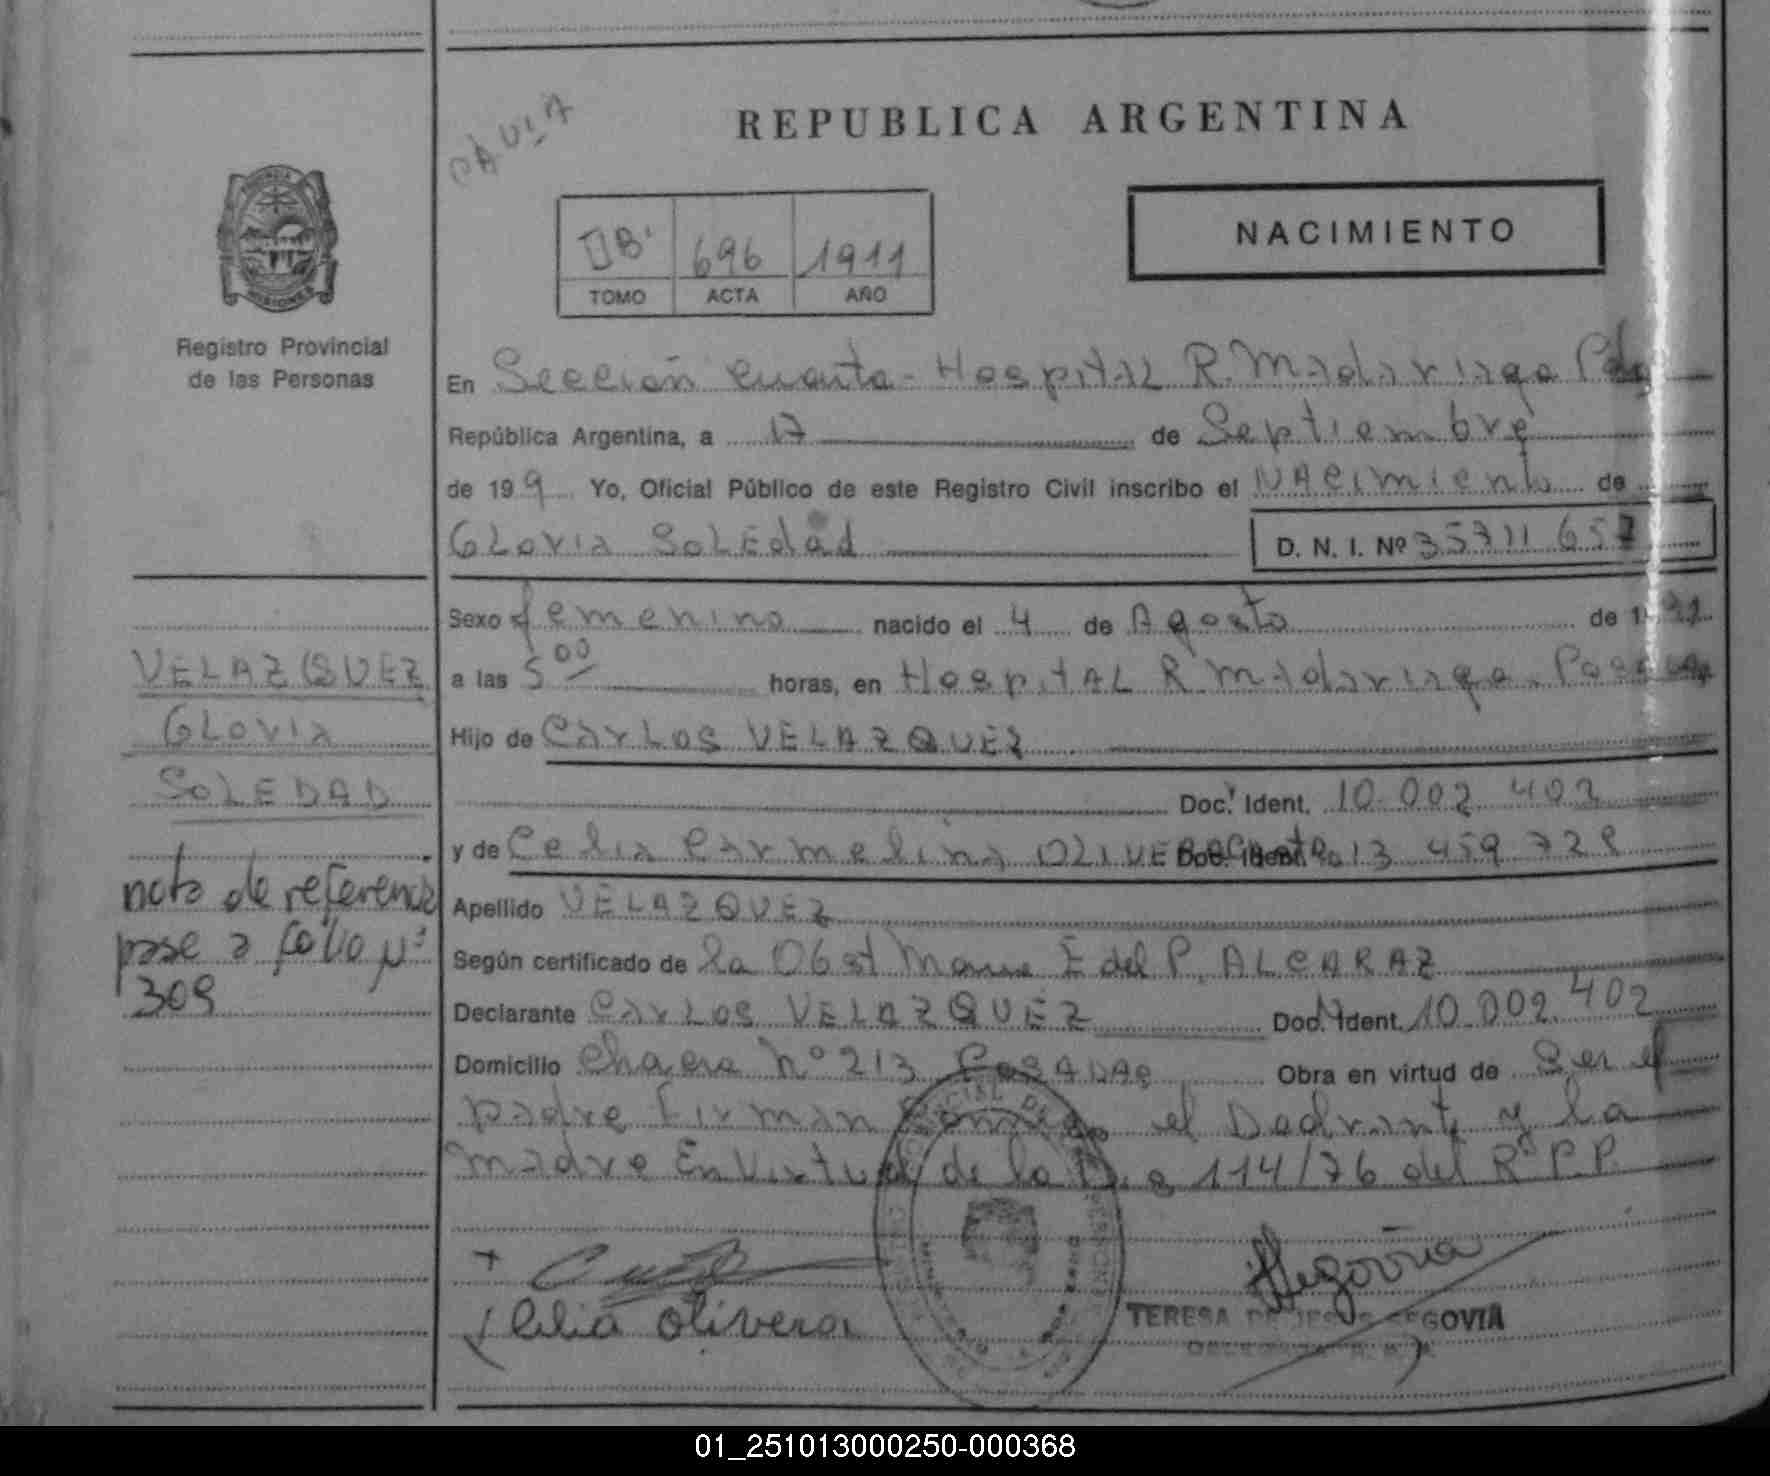 PAULA
REPUBLICA ARGENTINA
NACIMIENTO
696 1911
TOMO ACTA AÑO
PROVINCIA
MISIONES
Registro Provincial
de las Personas
En Sección cuarta - Hospital R. Madariaga Pdas
República Argentina, a 17 de Septiembre
de 199 Yo, Oficial Público de este Registro Civil inscribo el NAcimiento de
GLoria SoLEdad D. N. I. Nº 35711 657
Sexo femenino nacido el 4 de Agosto de 1991
a las 5 00 horas, en HospitAL R Madariaga. Posadas
Hijo de CarLos VELAZQUEZ
Doc. Ident. 10.002 402
y de Celia Carmelina OLIVERA Doc. Ident. 13 459 728
Apellido VELAZQUEZ
Según certificado de la Obst E del P. ALCARAZ
Declarante CarLos VELAZQUEZ Doc. Ident. 10.002.402
Domicilio Chacra Nº 213 POSADAS Obra en virtud de Ser el
padre Firman el y la
madre En Virtud de la 114/76 del Rº P.P.
VELAZQUEZ
GLoria
SoLEDAD
nota de referencia
pase a folio Nº
309
Celia Olivera
Segovia
TERESA DE JESUS SEGOVIA
01_251013000250-000368